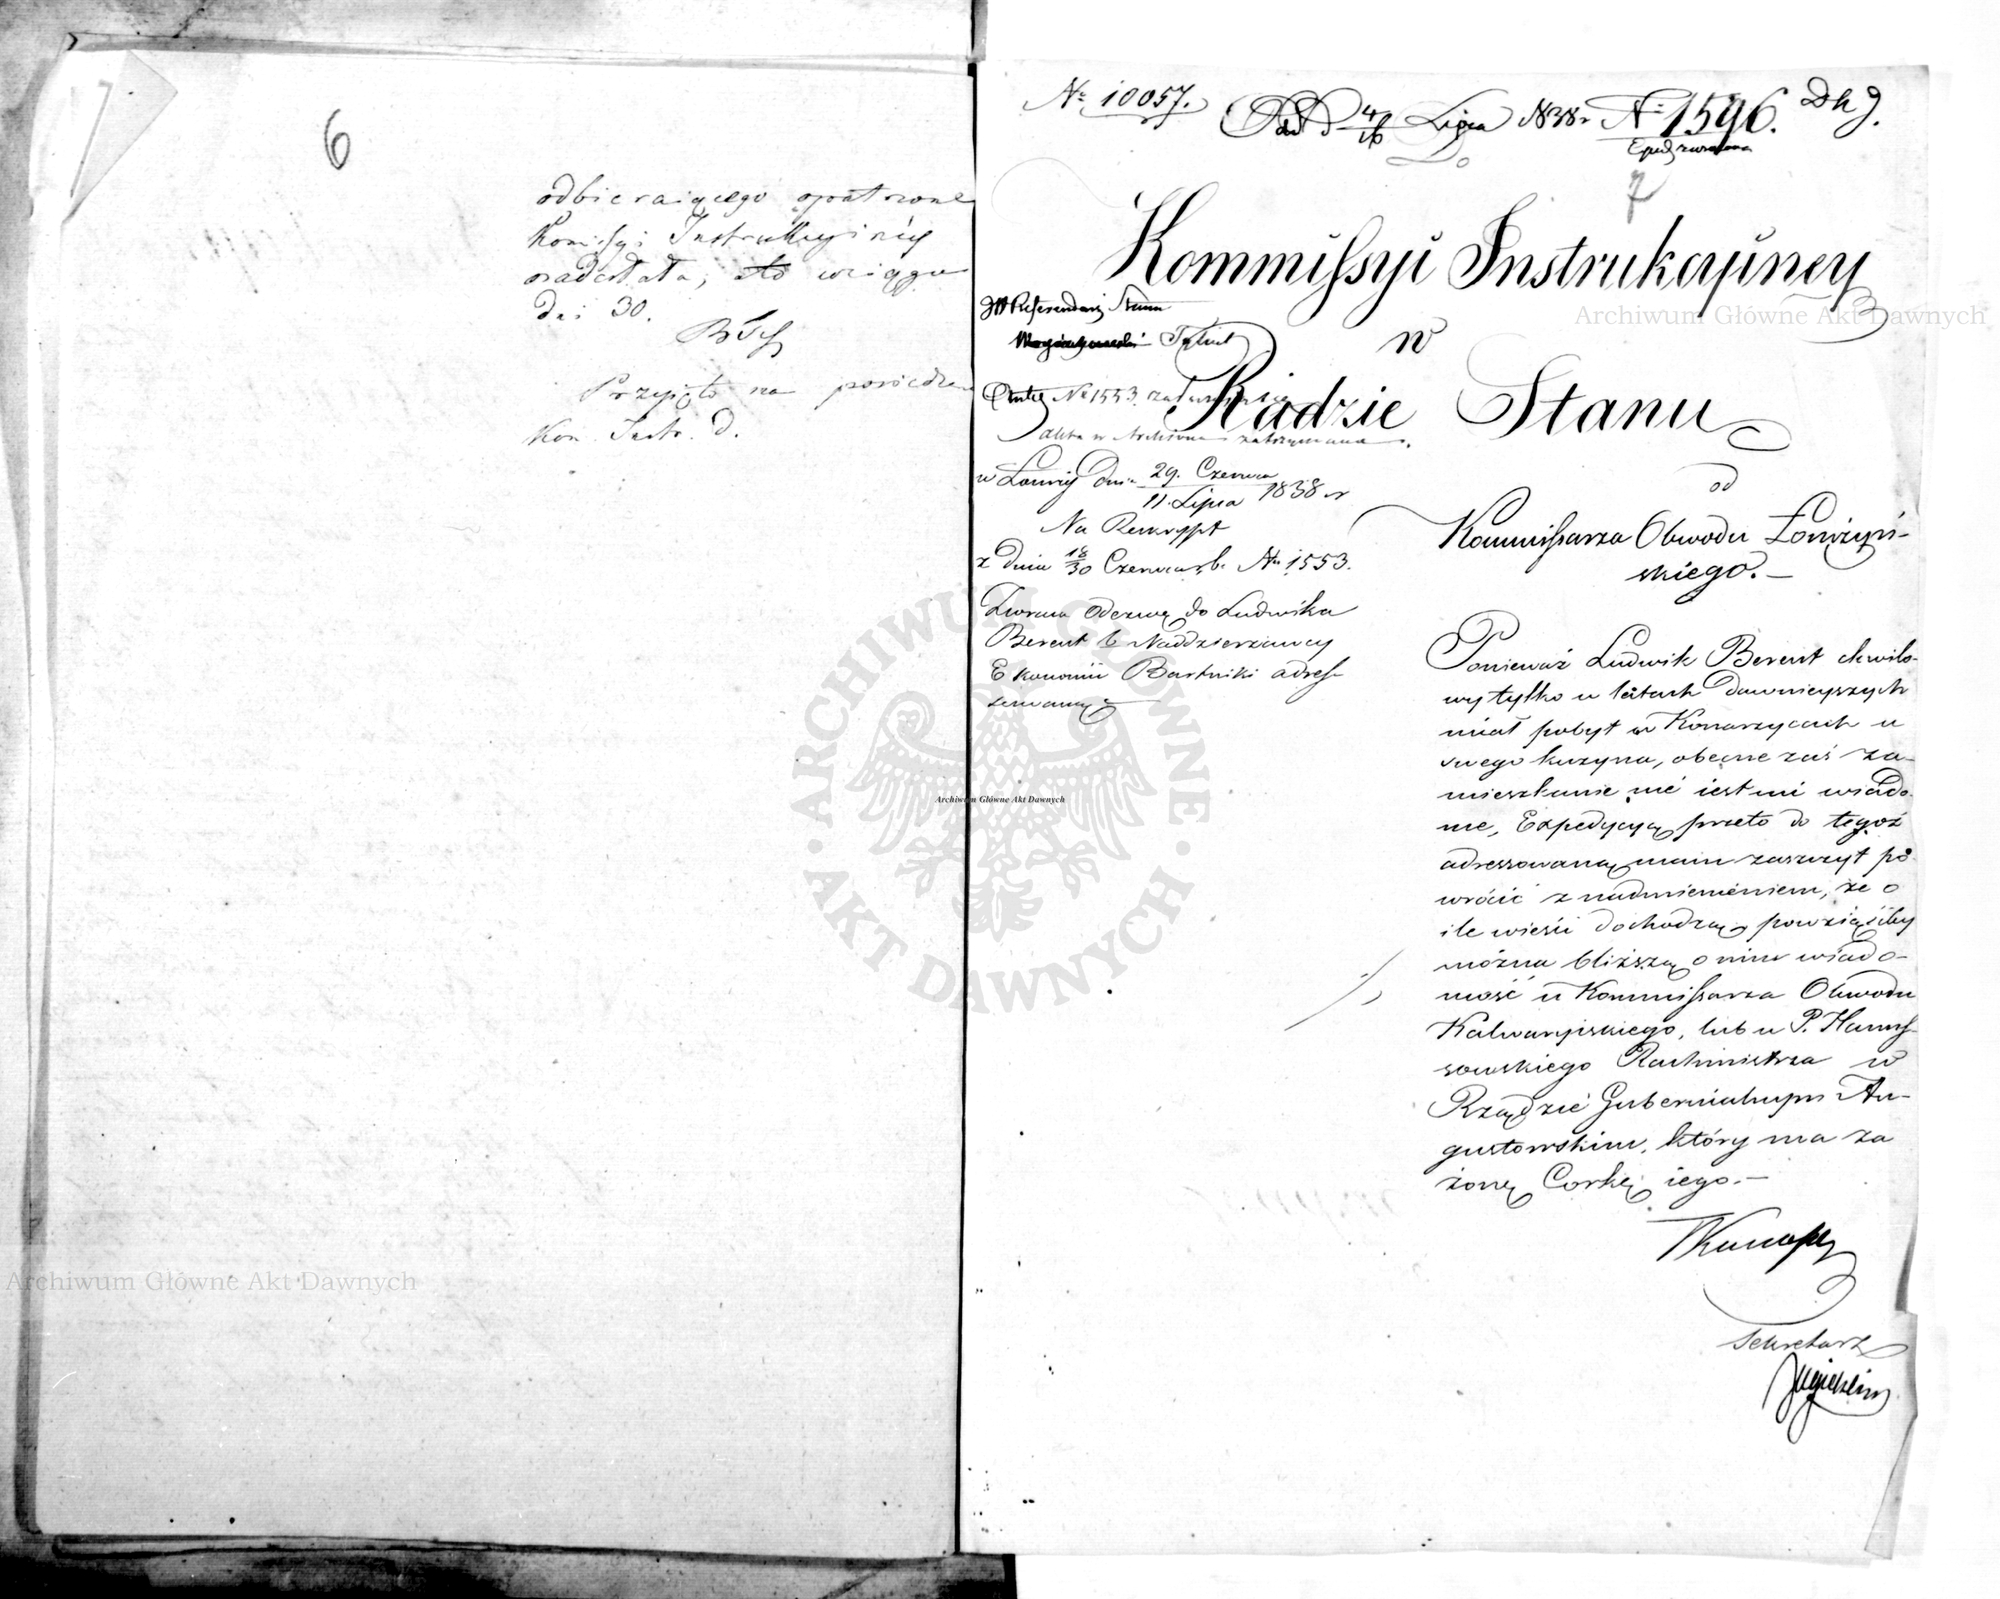 6
odbieraiącego opatrzone
Komissyi Instrukcyinéy
nadesłała, a to w ciągu
dni 30.
Przyięto na posiedzen
Kom. Instr. d.
№ 10057.
d 4/16 Lipca 1838 r № 1596.
7
Kommissyi Instrukcyiney
w
Radzie Stanu
JW Referendarz Stanu
№ 1553
akta w Archiwum zatrzymane.
w Łomży dnia 29. Czerwca / 11. Lipca 1838 r
Na Reskrypt
z dnia 18/30 Czerwca r. b. Nr 1553.
Zwraca odezwę do Ludwika
Berent b. Naddzierżawcy
Ekonomii Bartniki adres-
sowaną
od
Kommissarza Obwodu Łomżyń-
skiego.—
Ponieważ Ludwik Berent chwilo-
wy tylko w latach dawnieyszych
miał pobyt w Konarzycach u
swego kuzyna, obecne zaś za-
mieszkanie nié iest mi wiado-
me, Expedycyą przeto do tegoż
adressowaną mam zaszczyt po-
wrócić z nadmieniéniem, że o
ile wieści dochodzą, powziąśćby
można bliższą o nim wiado-
mość u Kommissarza Obwodu
Kalwaryiskiego, lub u P.
Rachmistrza w
Rządzié Gubernialnym Au-
gustowskim, który ma za
żonę Corkę iego.—
Sekretarz
Archiwum Główne Akt Dawnych
Archiwum Główne Akt Dawnych
Archiwum Główne Akt Dawnych
ARCHIWUM GŁÓWNE AKT DAWNYCH